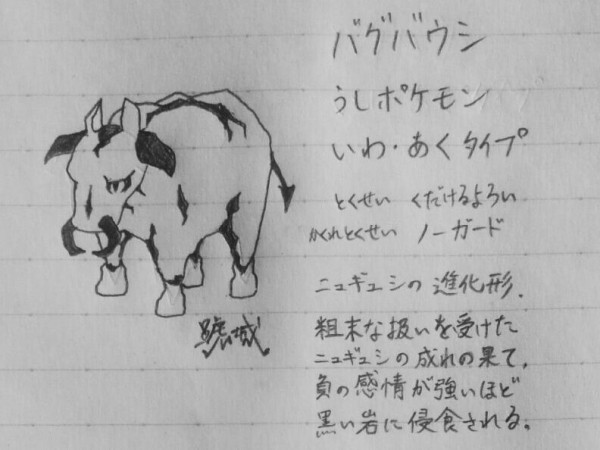 バグバウシ
うしポケモン
いわ・あくタイプ
とくせい くだけるよろい
かくれとくせい ノーガード
ニュギュシの進化形.
粗末な扱いを受けた
ニュギュシの成れの果て.
負の感情が強いほど
黒い岩に侵食される.